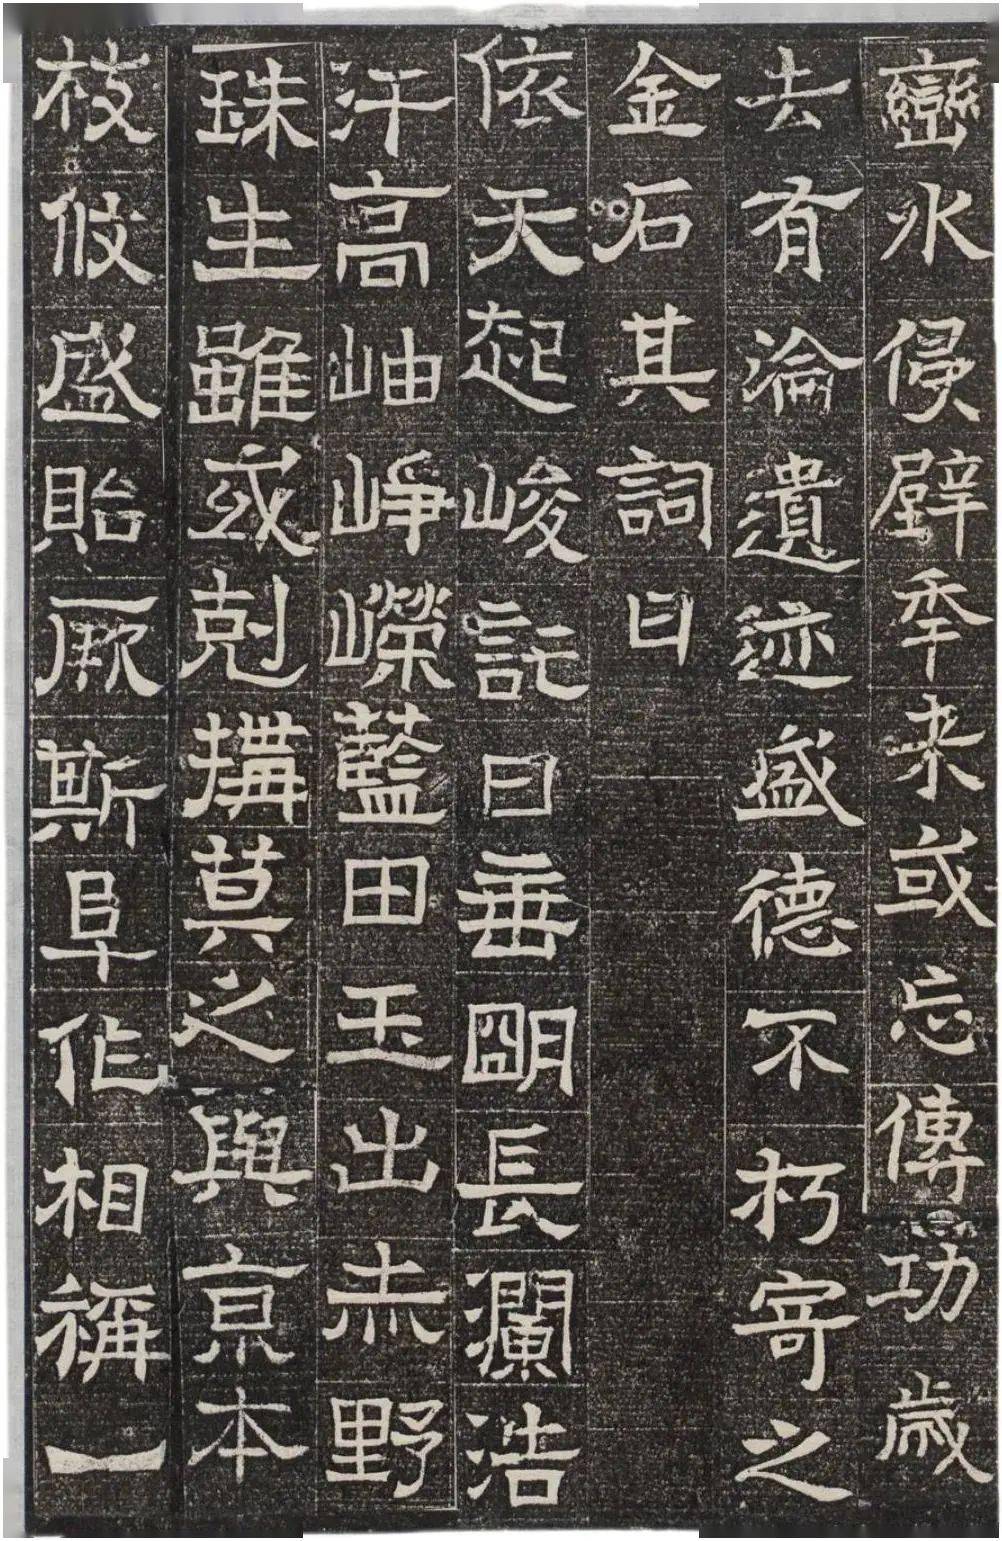 巒水侵壁秊来或忘傳功歲
去有淪遺迹盛德不朽寄之
金石其詞曰
依天起峻託日垂明長瀾浩
汗高岫崢嶸藍田玉出赤野
珠生雖或剋搆莫之與亰本
枝攸盛貽厥斯阜作相稱一